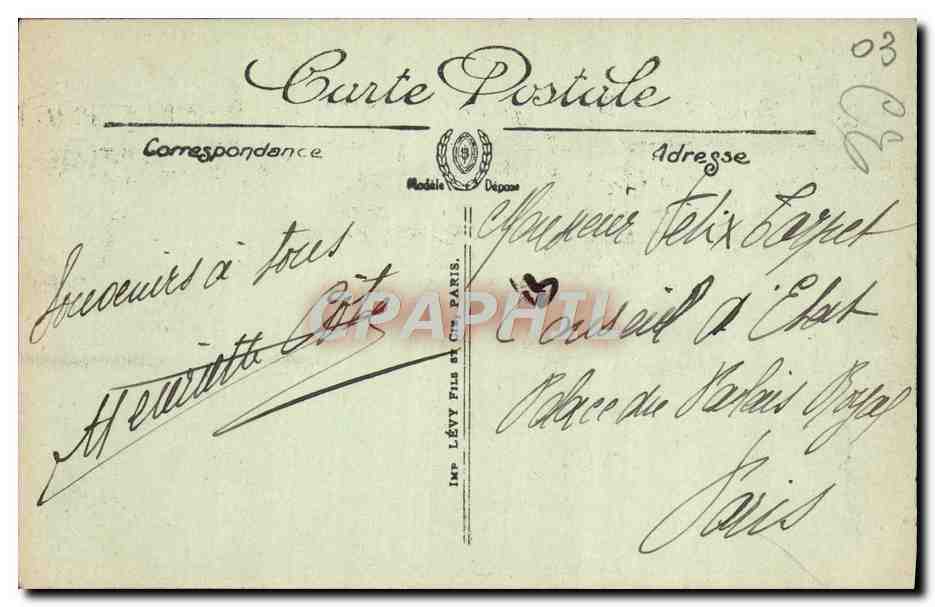 03
Carte Postale
Correspondance
Adresse
Modèle Déposé
Souvenirs à tous
Henriette Côte
IMP LÉVY FILS ET CIE, PARIS.
Monsieur Félix
Conseil d'Etat
Palace du Palais Royal
Paris
CPAPHIL